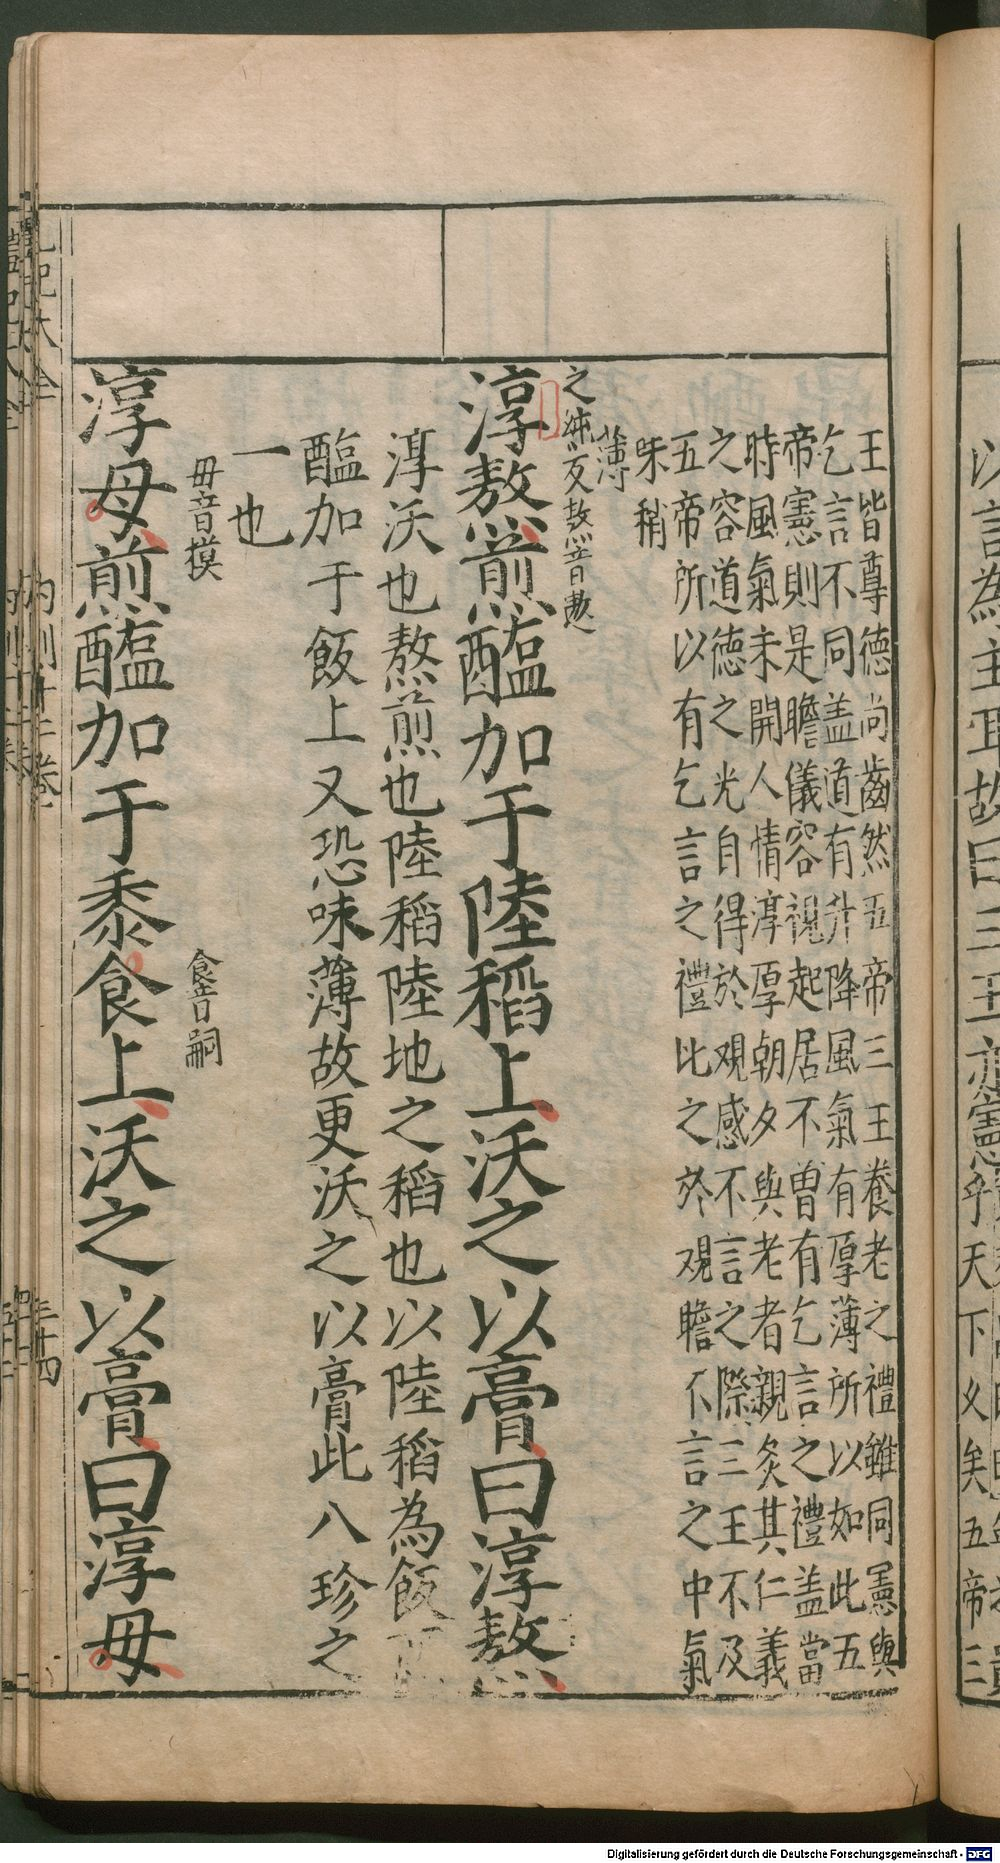 王皆尊德尚齒然五帝三王養老之禮雖同憲與
乞言不同盖道有升降風氣有厚薄所以如此五
帝憲則是瞻儀容視起居不曽有乞言之禮盖當
時風氣未開人情淳厚朝夕與老者親炙其仁義
之容道德之光自得於观感不言之際三王不及
五帝所以有乞言之禮比之於观瞻不言之中氣
味稍
薄
之純反熬音敖
淳熬煎醢加于陸稻上沃之以膏曰淳熬
淳沃也熬煎也陸稻陸地之稻也以陸稻為飯
醢加于飯上又恐味薄故更沃之以膏此八珍之
一也
毋音模 食音嗣
淳毋煎醢加于黍食上沃之以膏曰淳毋
以言為主耳故曰三王亦憲乎天下乂矣五帝三
Digitalisierung gefördert durch die Deutsche Forschungsgemeinschaft - DFG